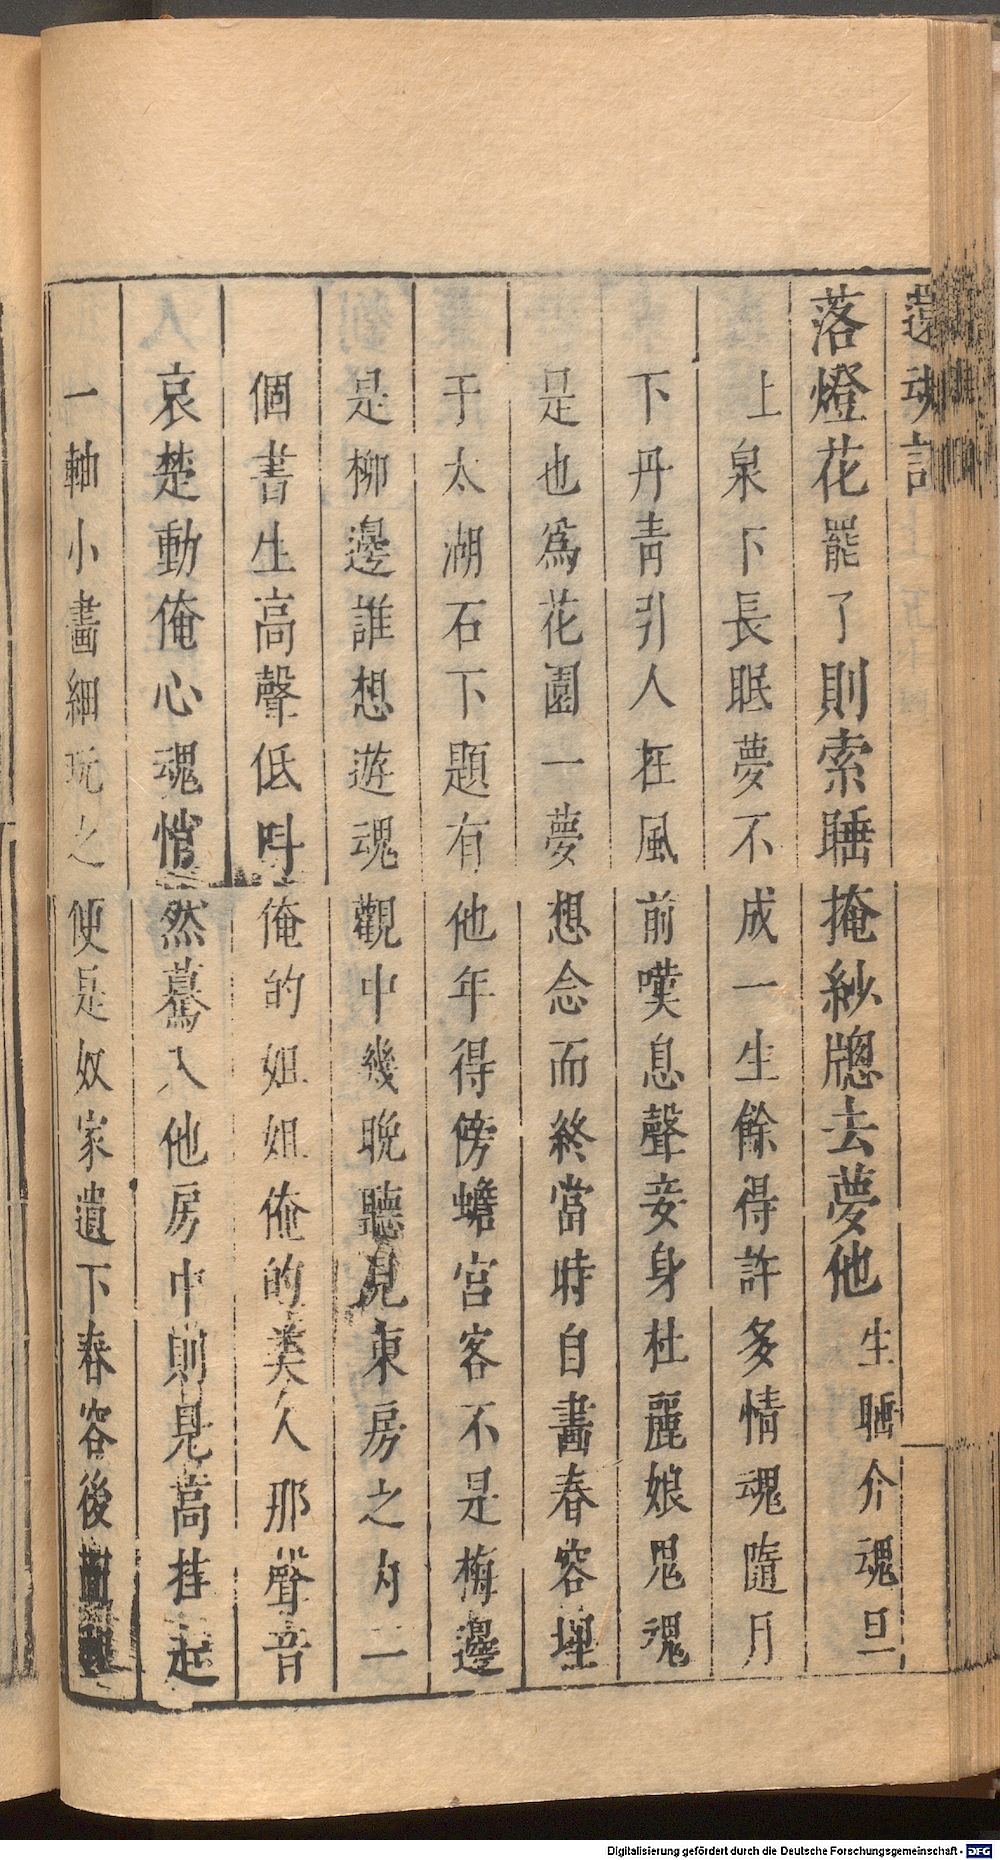 還魂記
落燈花罷了則索睡掩紗牕去夢他生睡介魂旦
上泉下長眠夢不成一生餘得許多情魂隨月
下丹青引人在風前嘆息聲妾身杜麗娘鬼魂
是也為花園一夢想念而終當時自畫春容埋
于太湖石下題有他年得傍蟾宮客不是梅邊
是柳邊誰想遊魂觀中幾晚聽見東房之內一
個書生高聲低叫俺的姐姐俺的美人那聲音
哀楚動俺心魂悄然驀入他房中則見高挂起
一軸小畫細玩之便是奴家遺下春容後面
Digitalisierung gefördert durch die Deutsche Forschungsgemeinschaft - DFG